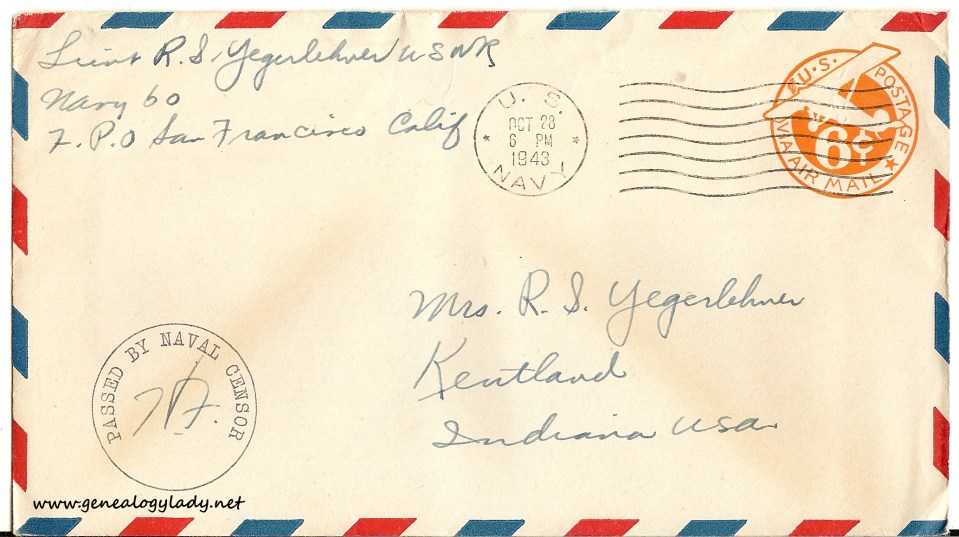 Lieut R. S. Yegerlehner USNR
Navy 60
F. P. O San Francisco Calif
U. S.
OCT 28
6 PM
1943
NAVY
U.S. POSTAGE
6¢
VIA AIR MAIL
Mrs. R. S. Yegerlehner
Kentland
Indiana USA
PASSED BY NAVAL CENSOR
www.genealogylady.net